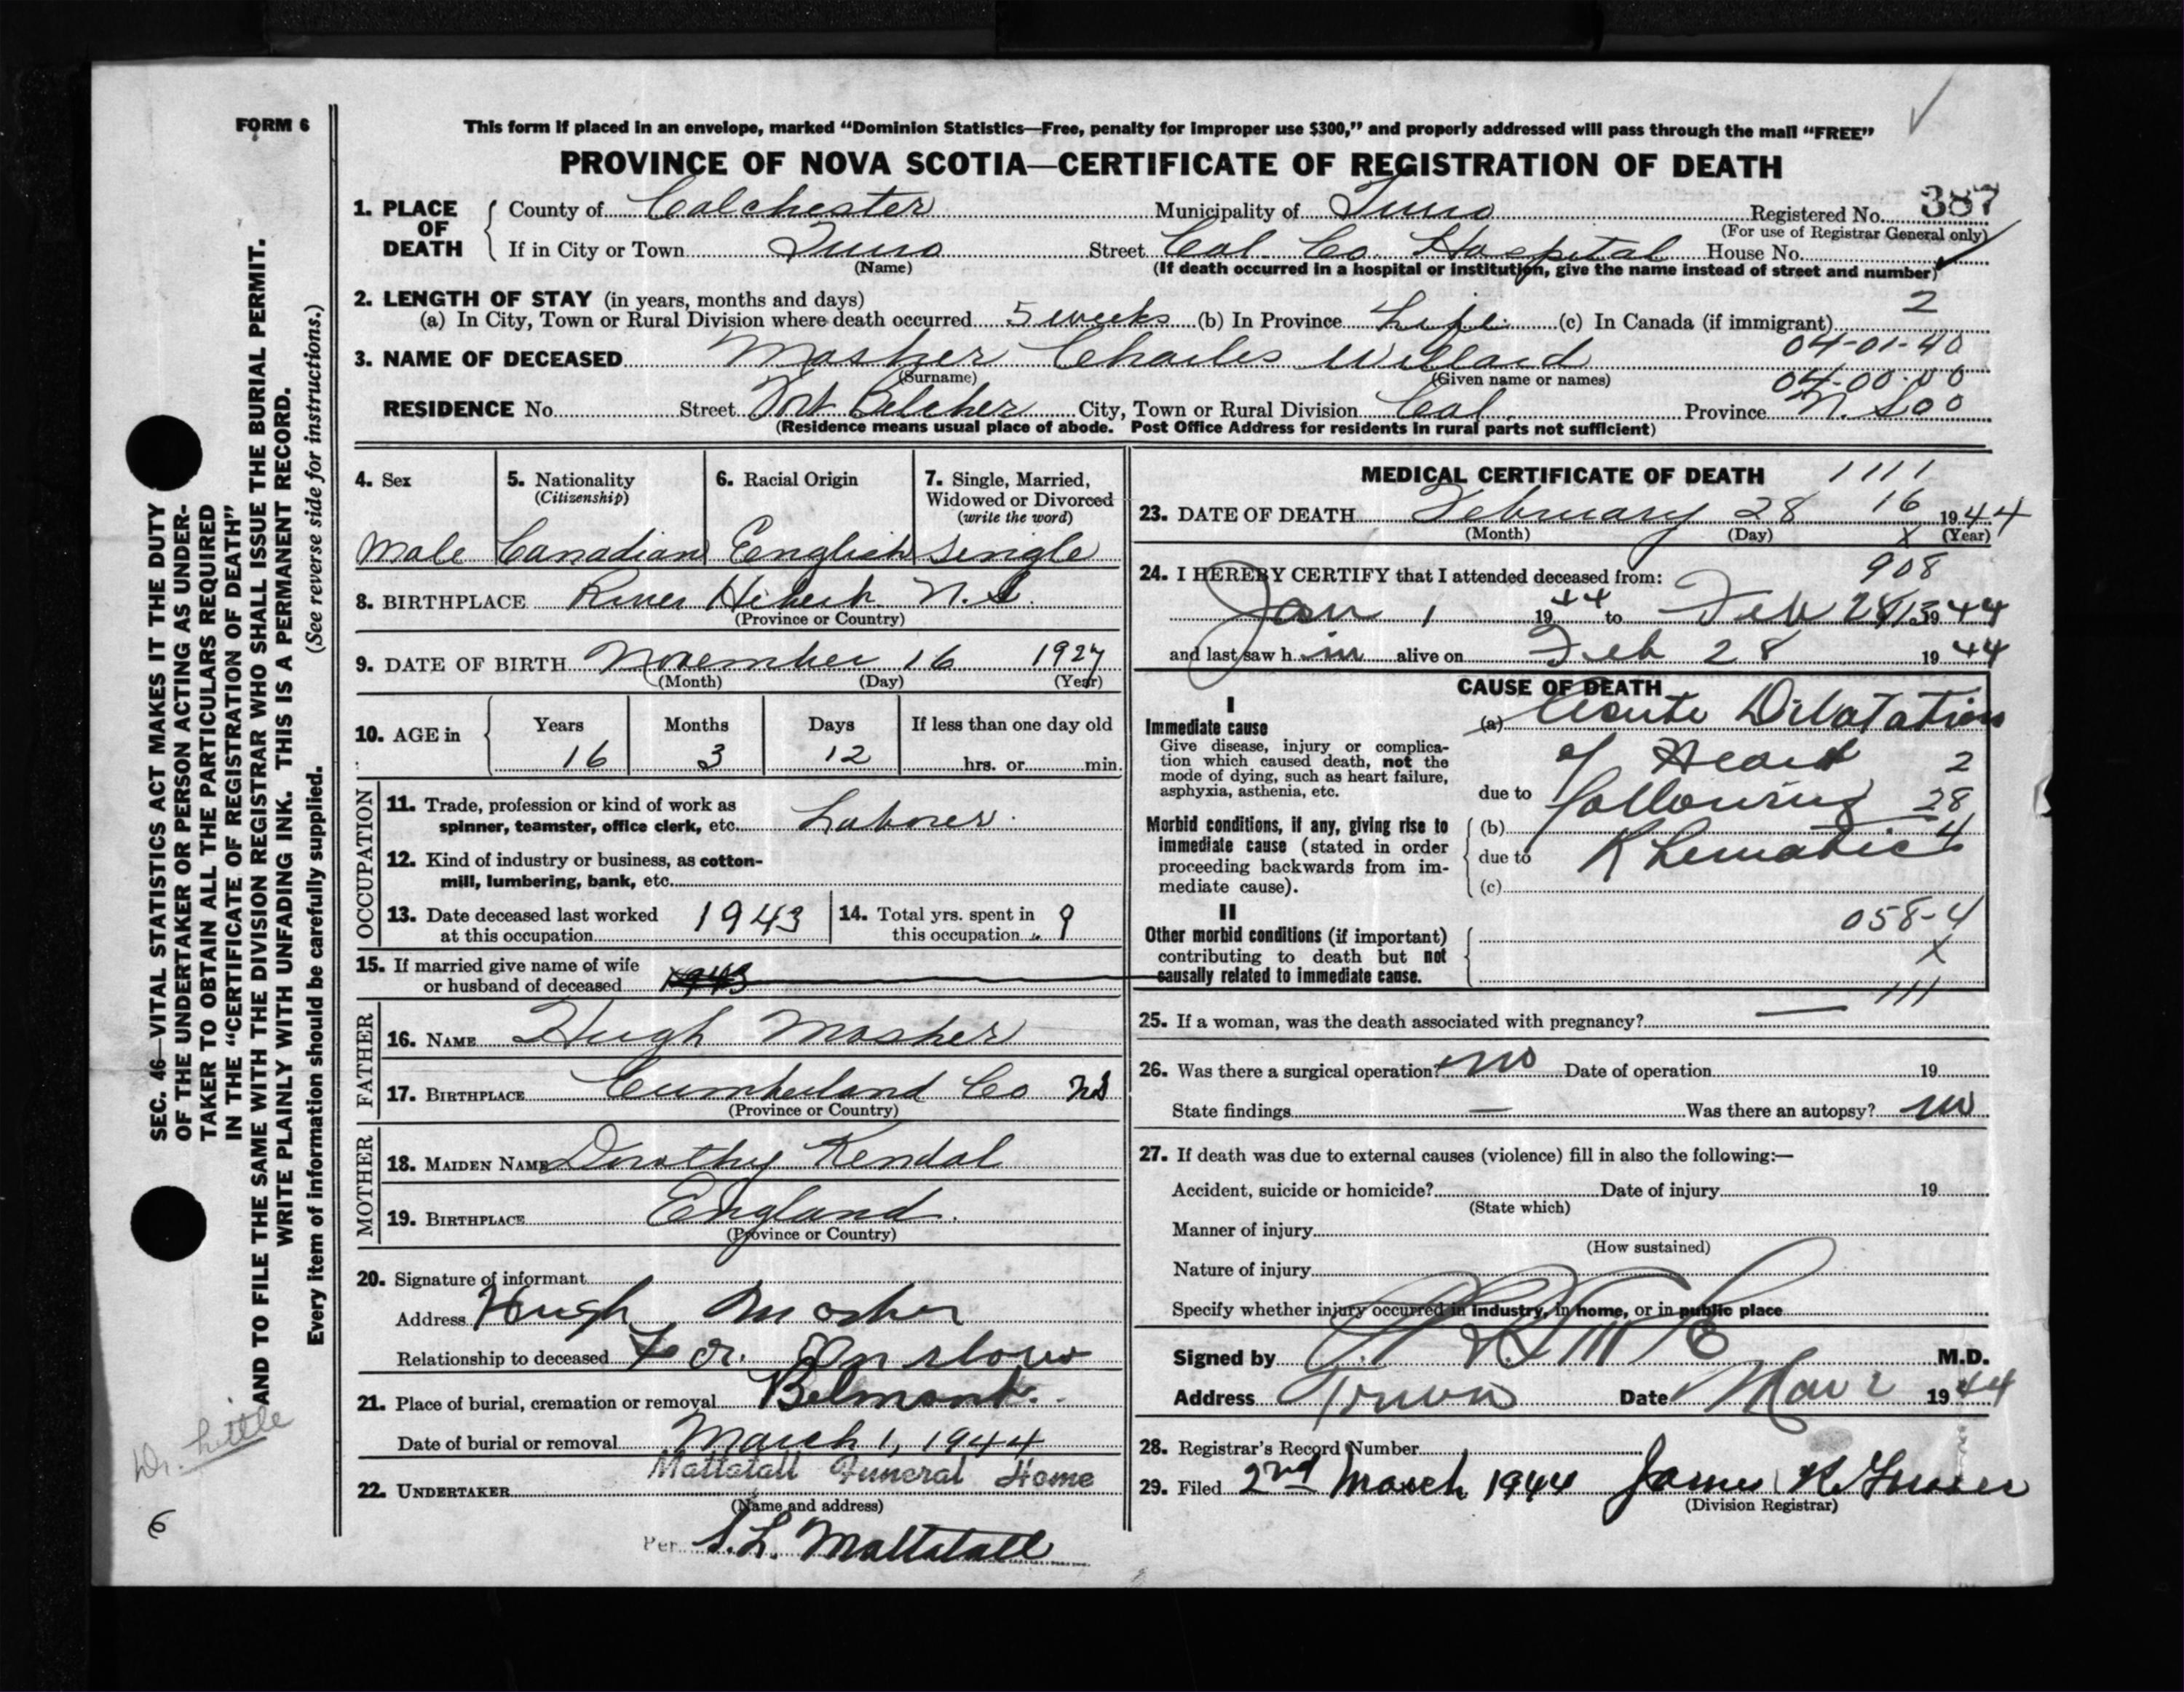 FORM 6
This form if placed in an envelope, marked "Dominion Statistics—Free, penalty for improper use $300," and properly addressed will pass through the mail "FREE"
PROVINCE OF NOVA SCOTIA—CERTIFICATE OF REGISTRATION OF DEATH
1. PLACE OF DEATH { County of Colchester Municipality of Truro Registered No. 387
(For use of Registrar General only)
If in City or Town Truro Street Col. Co. Hospital House No.
(Name) (If death occurred in a hospital or institution, give the name instead of street and number)
2. LENGTH OF STAY (in years, months and days) 2
(a) In City, Town or Rural Division where death occurred 5 weeks (b) In Province Life (c) In Canada (if immigrant)
04-01-40
3. NAME OF DECEASED Mosher Charles Willard
(Surname) (Given name or names) 04-00-00
RESIDENCE No. Street Fort Belcher City, Town or Rural Division Col. Province N.S.
(Residence means usual place of abode. Post Office Address for residents in rural parts not sufficient)
4. Sex 5. Nationality (Citizenship) 6. Racial Origin 7. Single, Married, Widowed or Divorced (write the word)
Male Canadian English Single
8. BIRTHPLACE River Hebert N.S.
(Province or Country)
9. DATE OF BIRTH November 16 1927
(Month) (Day) (Year)
10. AGE in { Years Months Days If less than one day old
16 3 12 hrs. or min.
OCCUPATION
11. Trade, profession or kind of work as spinner, teamster, office clerk, etc. Laborer
12. Kind of industry or business, as cotton-mill, lumbering, bank, etc.
13. Date deceased last worked at this occupation 1943 14. Total yrs. spent in this occupation 9
15. If married give name of wife or husband of deceased 1943
FATHER
16. NAME Hugh Mosher
17. BIRTHPLACE Cumberland Co NS
(Province or Country)
MOTHER
18. MAIDEN NAME Dorothy Kendal
19. BIRTHPLACE England.
(Province or Country)
20. Signature of informant
Address Hugh Mosher
Relationship to deceased Onslow
21. Place of burial, cremation or removal Belmont.
Date of burial or removal March 1, 1944
Mattatall Funeral Home
22. UNDERTAKER
(Name and address)
Per S.L. Mattatall
MEDICAL CERTIFICATE OF DEATH 1111
23. DATE OF DEATH February 28 16 1944
(Month) (Day) X (Year)
908
24. I HEREBY CERTIFY that I attended deceased from:
Jan 1 1944 to Feb 28 1944
and last saw h im alive on Feb 28 1944
CAUSE OF DEATH
I
Immediate cause (a) Acute Dilatation
Give disease, injury or complication which caused death, not the mode of dying, such as heart failure, asphyxia, asthenia, etc.
of Heart 2
due to following 28
Morbid conditions, if any, giving rise to immediate cause (stated in order proceeding backwards from immediate cause).
(b) 4
due to Rhematic
(c)
II 058-4
Other morbid conditions (if important) contributing to death but not causally related to immediate cause. X
111
25. If a woman, was the death associated with pregnancy? —
26. Was there a surgical operation? no Date of operation 19
State findings — Was there an autopsy? no
27. If death was due to external causes (violence) fill in also the following:—
Accident, suicide or homicide? Date of injury 19
(State which)
Manner of injury
(How sustained)
Nature of injury
Specify whether injury occurred in industry, in home, or in public place
Signed by M.D.
Address Truro Date Mar 2 1944
28. Registrar's Record Number
29. Filed 2nd March 1944 James
(Division Registrar)
SEC. 46—VITAL STATISTICS ACT MAKES IT THE DUTY
OF THE UNDERTAKER OR PERSON ACTING AS UNDER-
TAKER TO OBTAIN ALL THE PARTICULARS REQUIRED
IN THE "CERTIFICATE OF REGISTRATION OF DEATH"
AND TO FILE THE SAME WITH THE DIVISION REGISTRAR WHO SHALL ISSUE THE BURIAL PERMIT.
WRITE PLAINLY WITH UNFADING INK. THIS IS A PERMANENT RECORD.
Every item of information should be carefully supplied. (See reverse side for instructions.)
Dr. Little
6